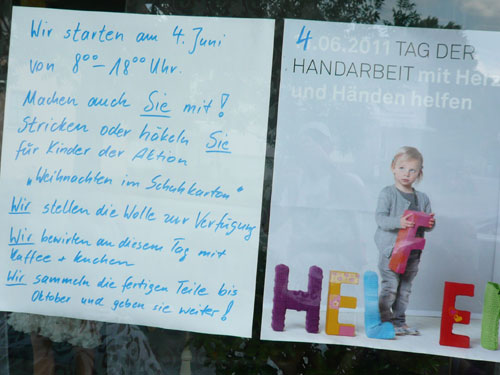 Wir starten am 4. Juni
von 8⁰⁰–18⁰⁰ Uhr.
Machen auch Sie mit!
Stricken oder häkeln Sie
für Kinder der Aktion
„Weihnachten im Schuhkarton"
Wir stellen die Wolle zur Verfügung
Wir bewirten an diesem Tag mit
Kaffee + Kuchen
Wir sammeln die fertigen Teile bis
Oktober und geben sie weiter!
4.06.2011 TAG DER
HANDARBEIT mit Herz
und Händen helfen
HELFEN